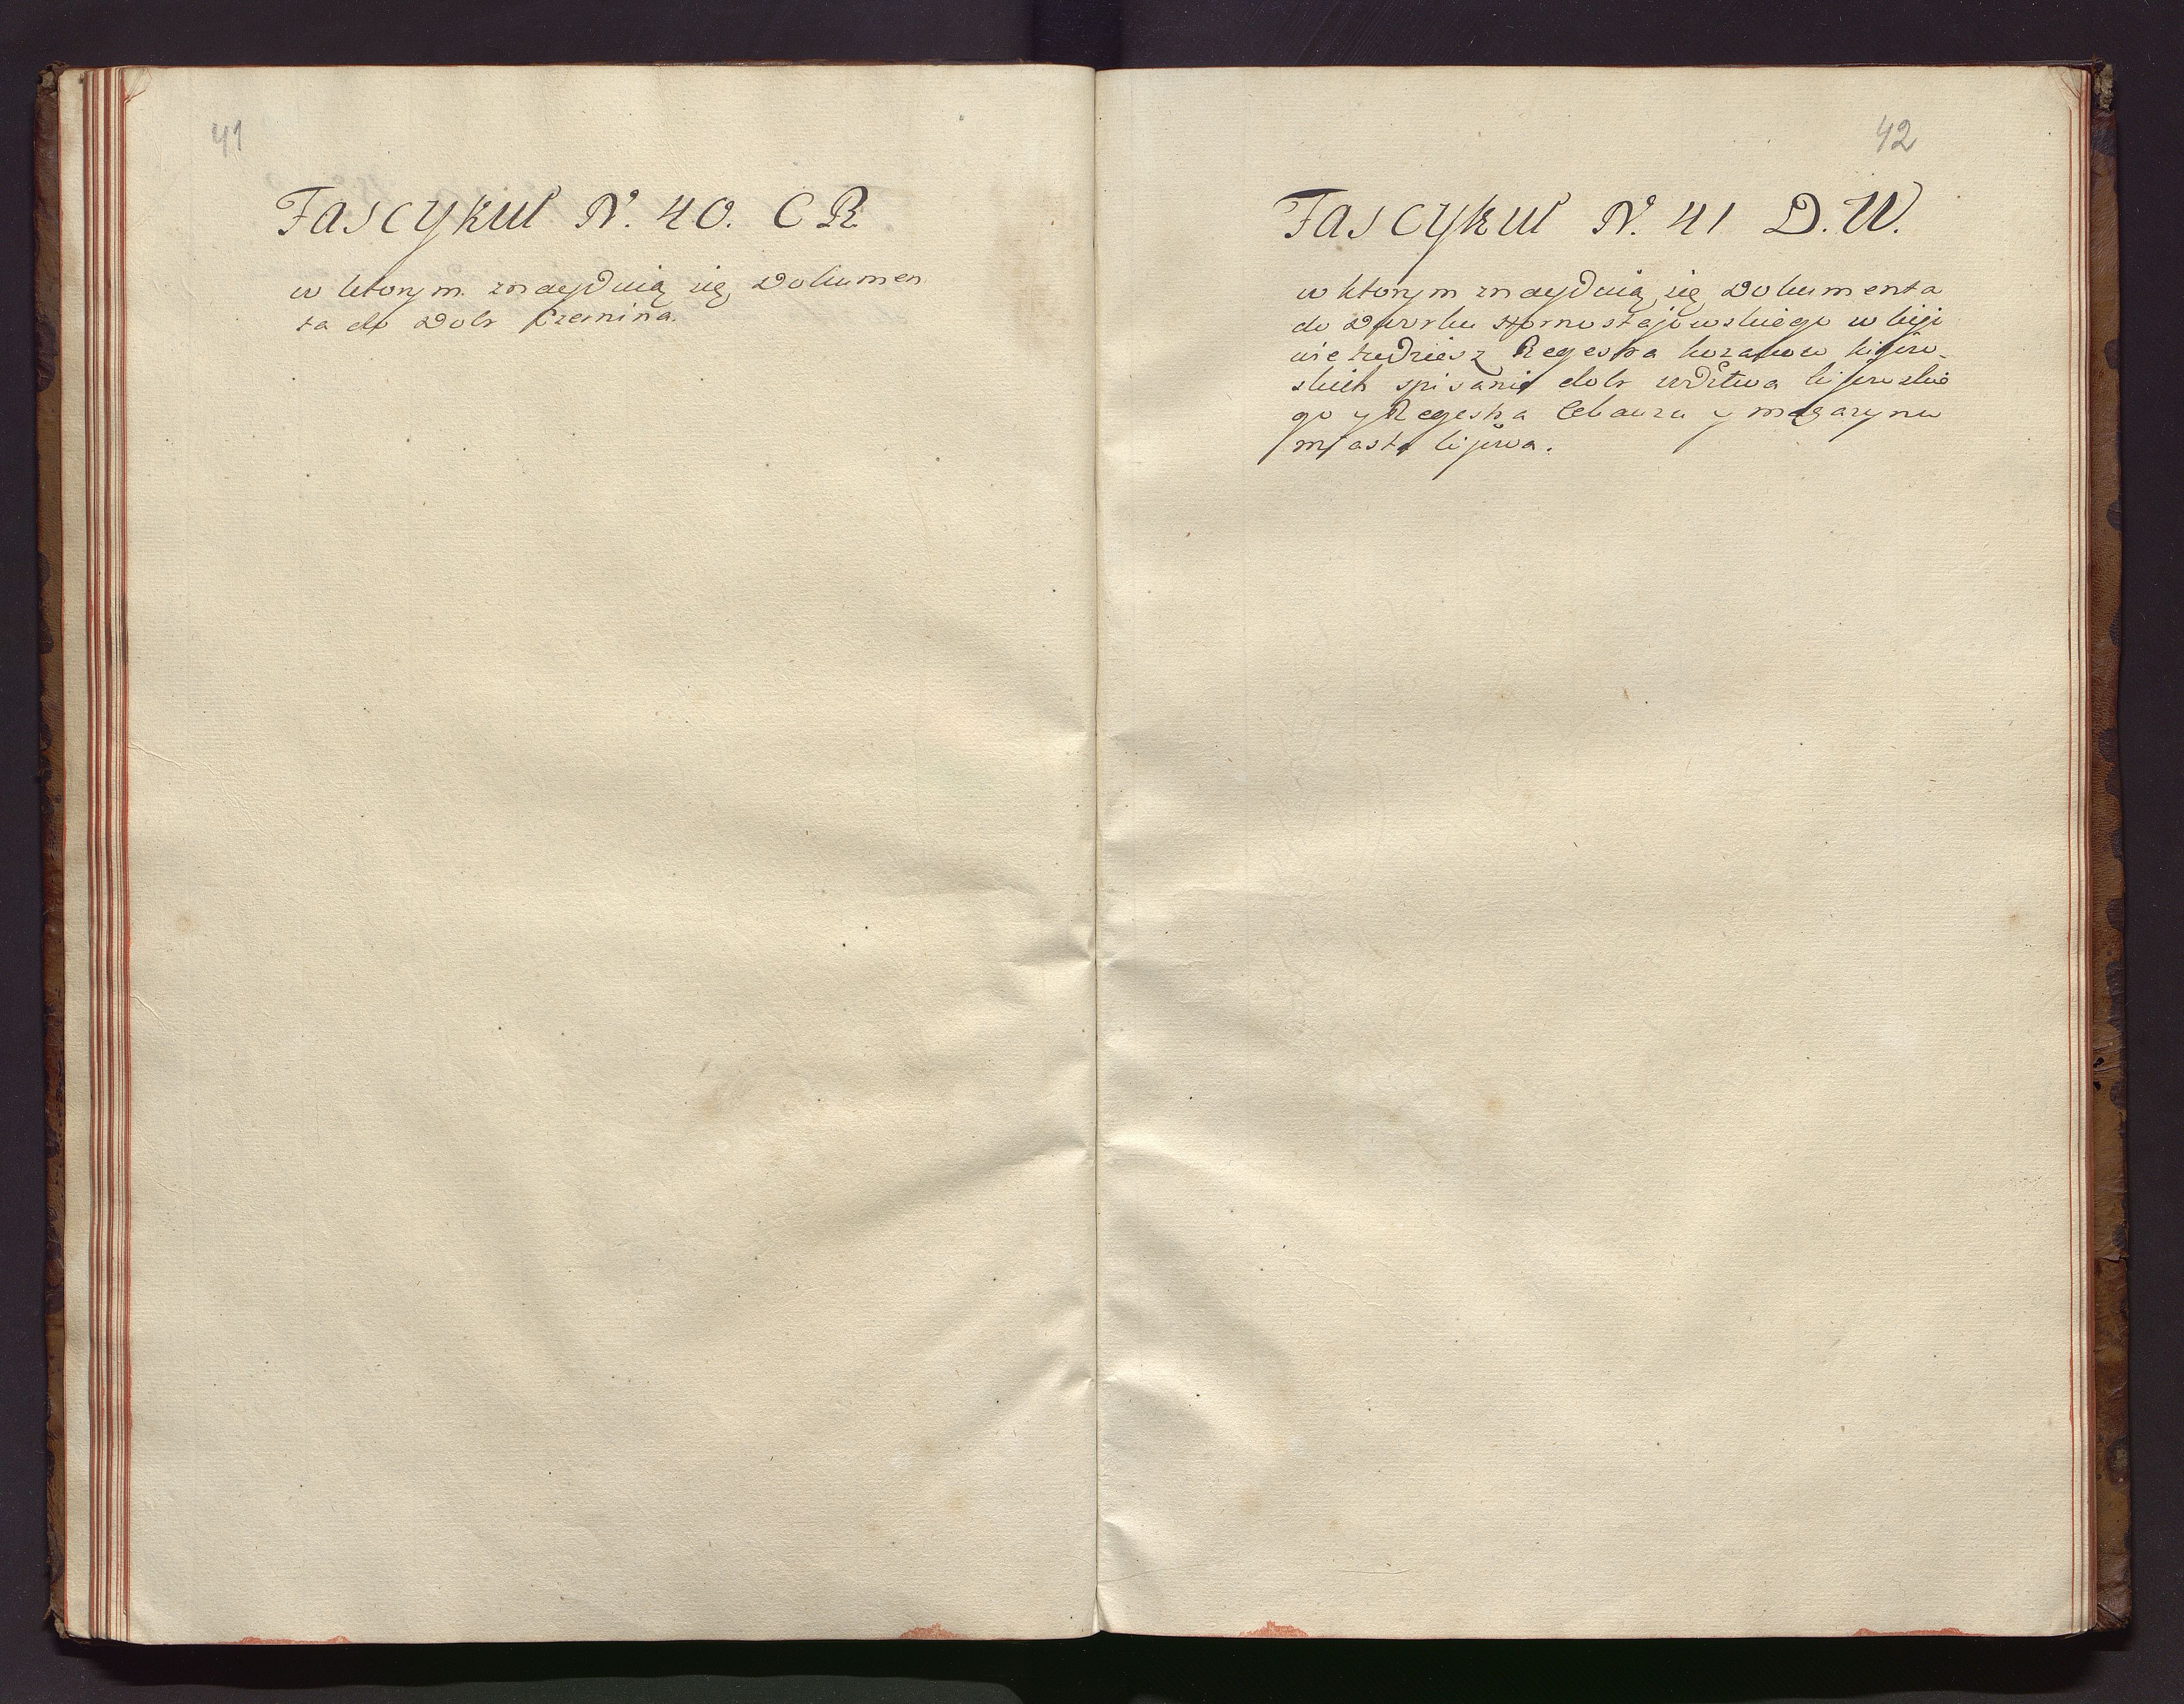 41
Fascykuł N. 40. C R
w ktorym znayduią się Dokumen
ta do Dobr Czernina.
42
Fascykuł N. 41 D. W.
w ktorym znayduią się Dokumenta
do Dworku Hornostajowskiego w kijo
wie tudziesz Regestra kozakow kijow-
skich spisanie dobr wdztwa kijowskie
go y Regestra Cekauzu y magazynu
miasta kijowa.